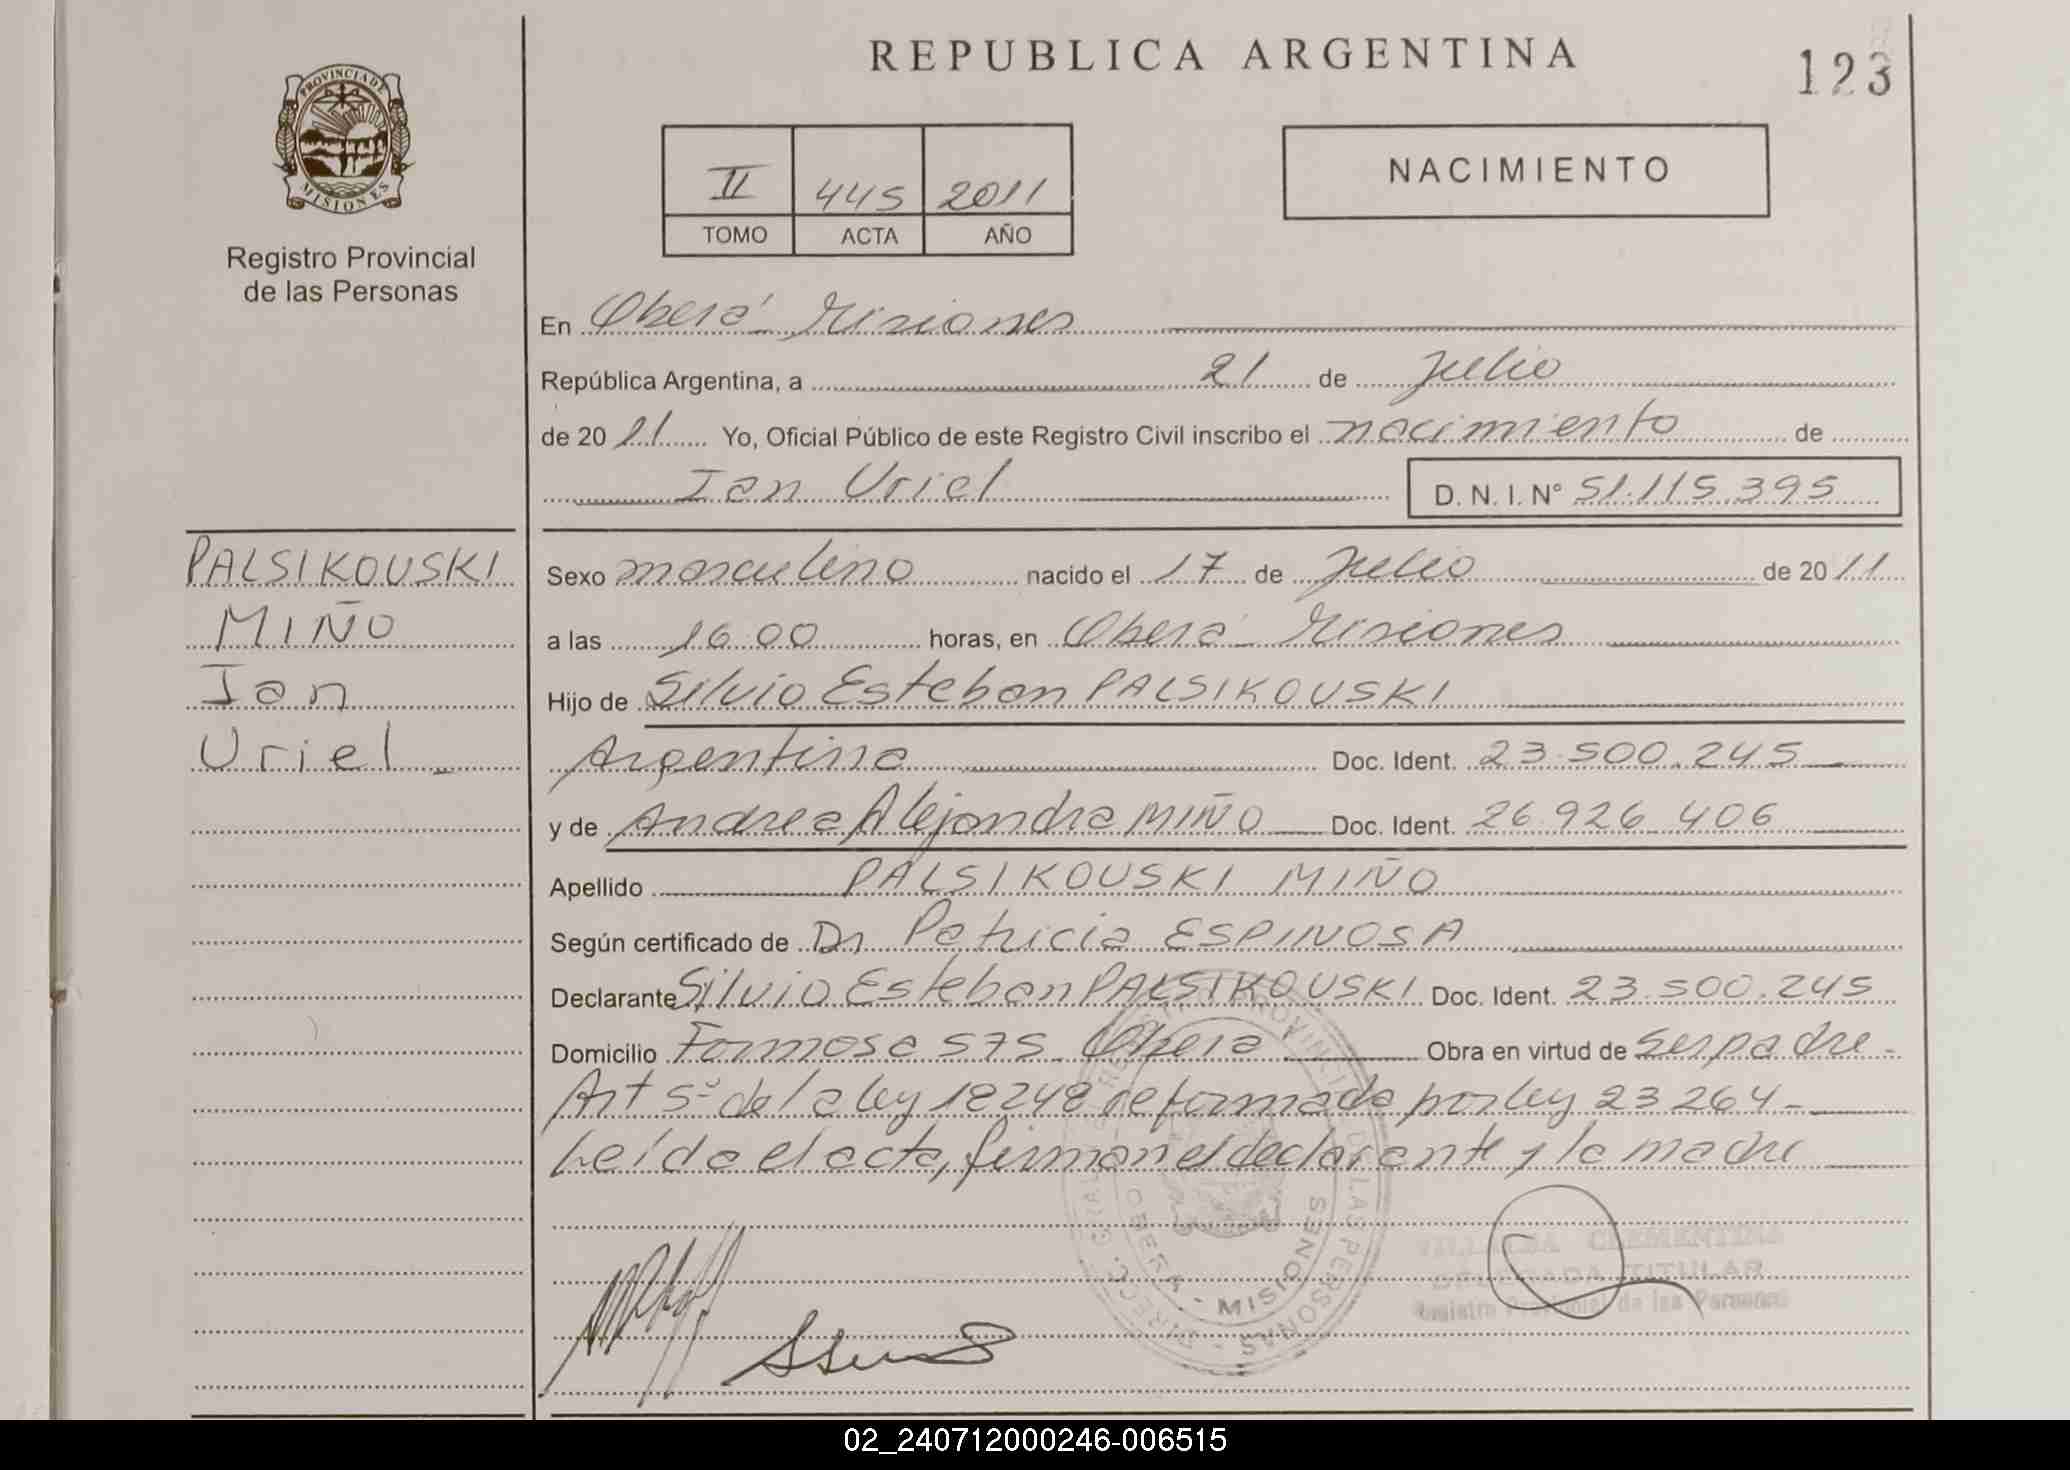 REPUBLICA ARGENTINA
123
PROVINCIA DE
MISIONES
Registro Provincial
de las Personas
II 445 2011
TOMO ACTA AÑO
NACIMIENTO
En Oberá Misiones
República Argentina, a 21 de Julio
de 2011 Yo, Oficial Público de este Registro Civil inscribo el nacimiento de
Ian Uriel D. N. I. N° 51.115.395
PALSIKOUSKI
MIÑO
Ian
Uriel
Sexo masculino nacido el 17 de Julio de 2011
a las 16:00 horas, en Oberá Misiones
Hijo de Silvio Esteban PALSIKOUSKI
Argentina Doc. Ident. 23.500.245
y de Andrea Alejandra MIÑO Doc. Ident. 26.926.406
Apellido PALSIKOUSKI MIÑO
Según certificado de Dr Patricia ESPINOSA
Declarante Silvio Esteban PALSIKOUSKI Doc. Ident. 23.500.245
Domicilio Formosa 575 Oberá Obra en virtud de ser padre -
Art 5º de la ley 18248 reformada por ley 23264 -
Leída el acta, firman el declarante y la madre
PROVINCIAL DE LAS PERSONAS
OBERA - MISIONES
CLEMENTINA
DELEGADA TITULAR
Registro Provincial de las Personas
02_240712000246-006515